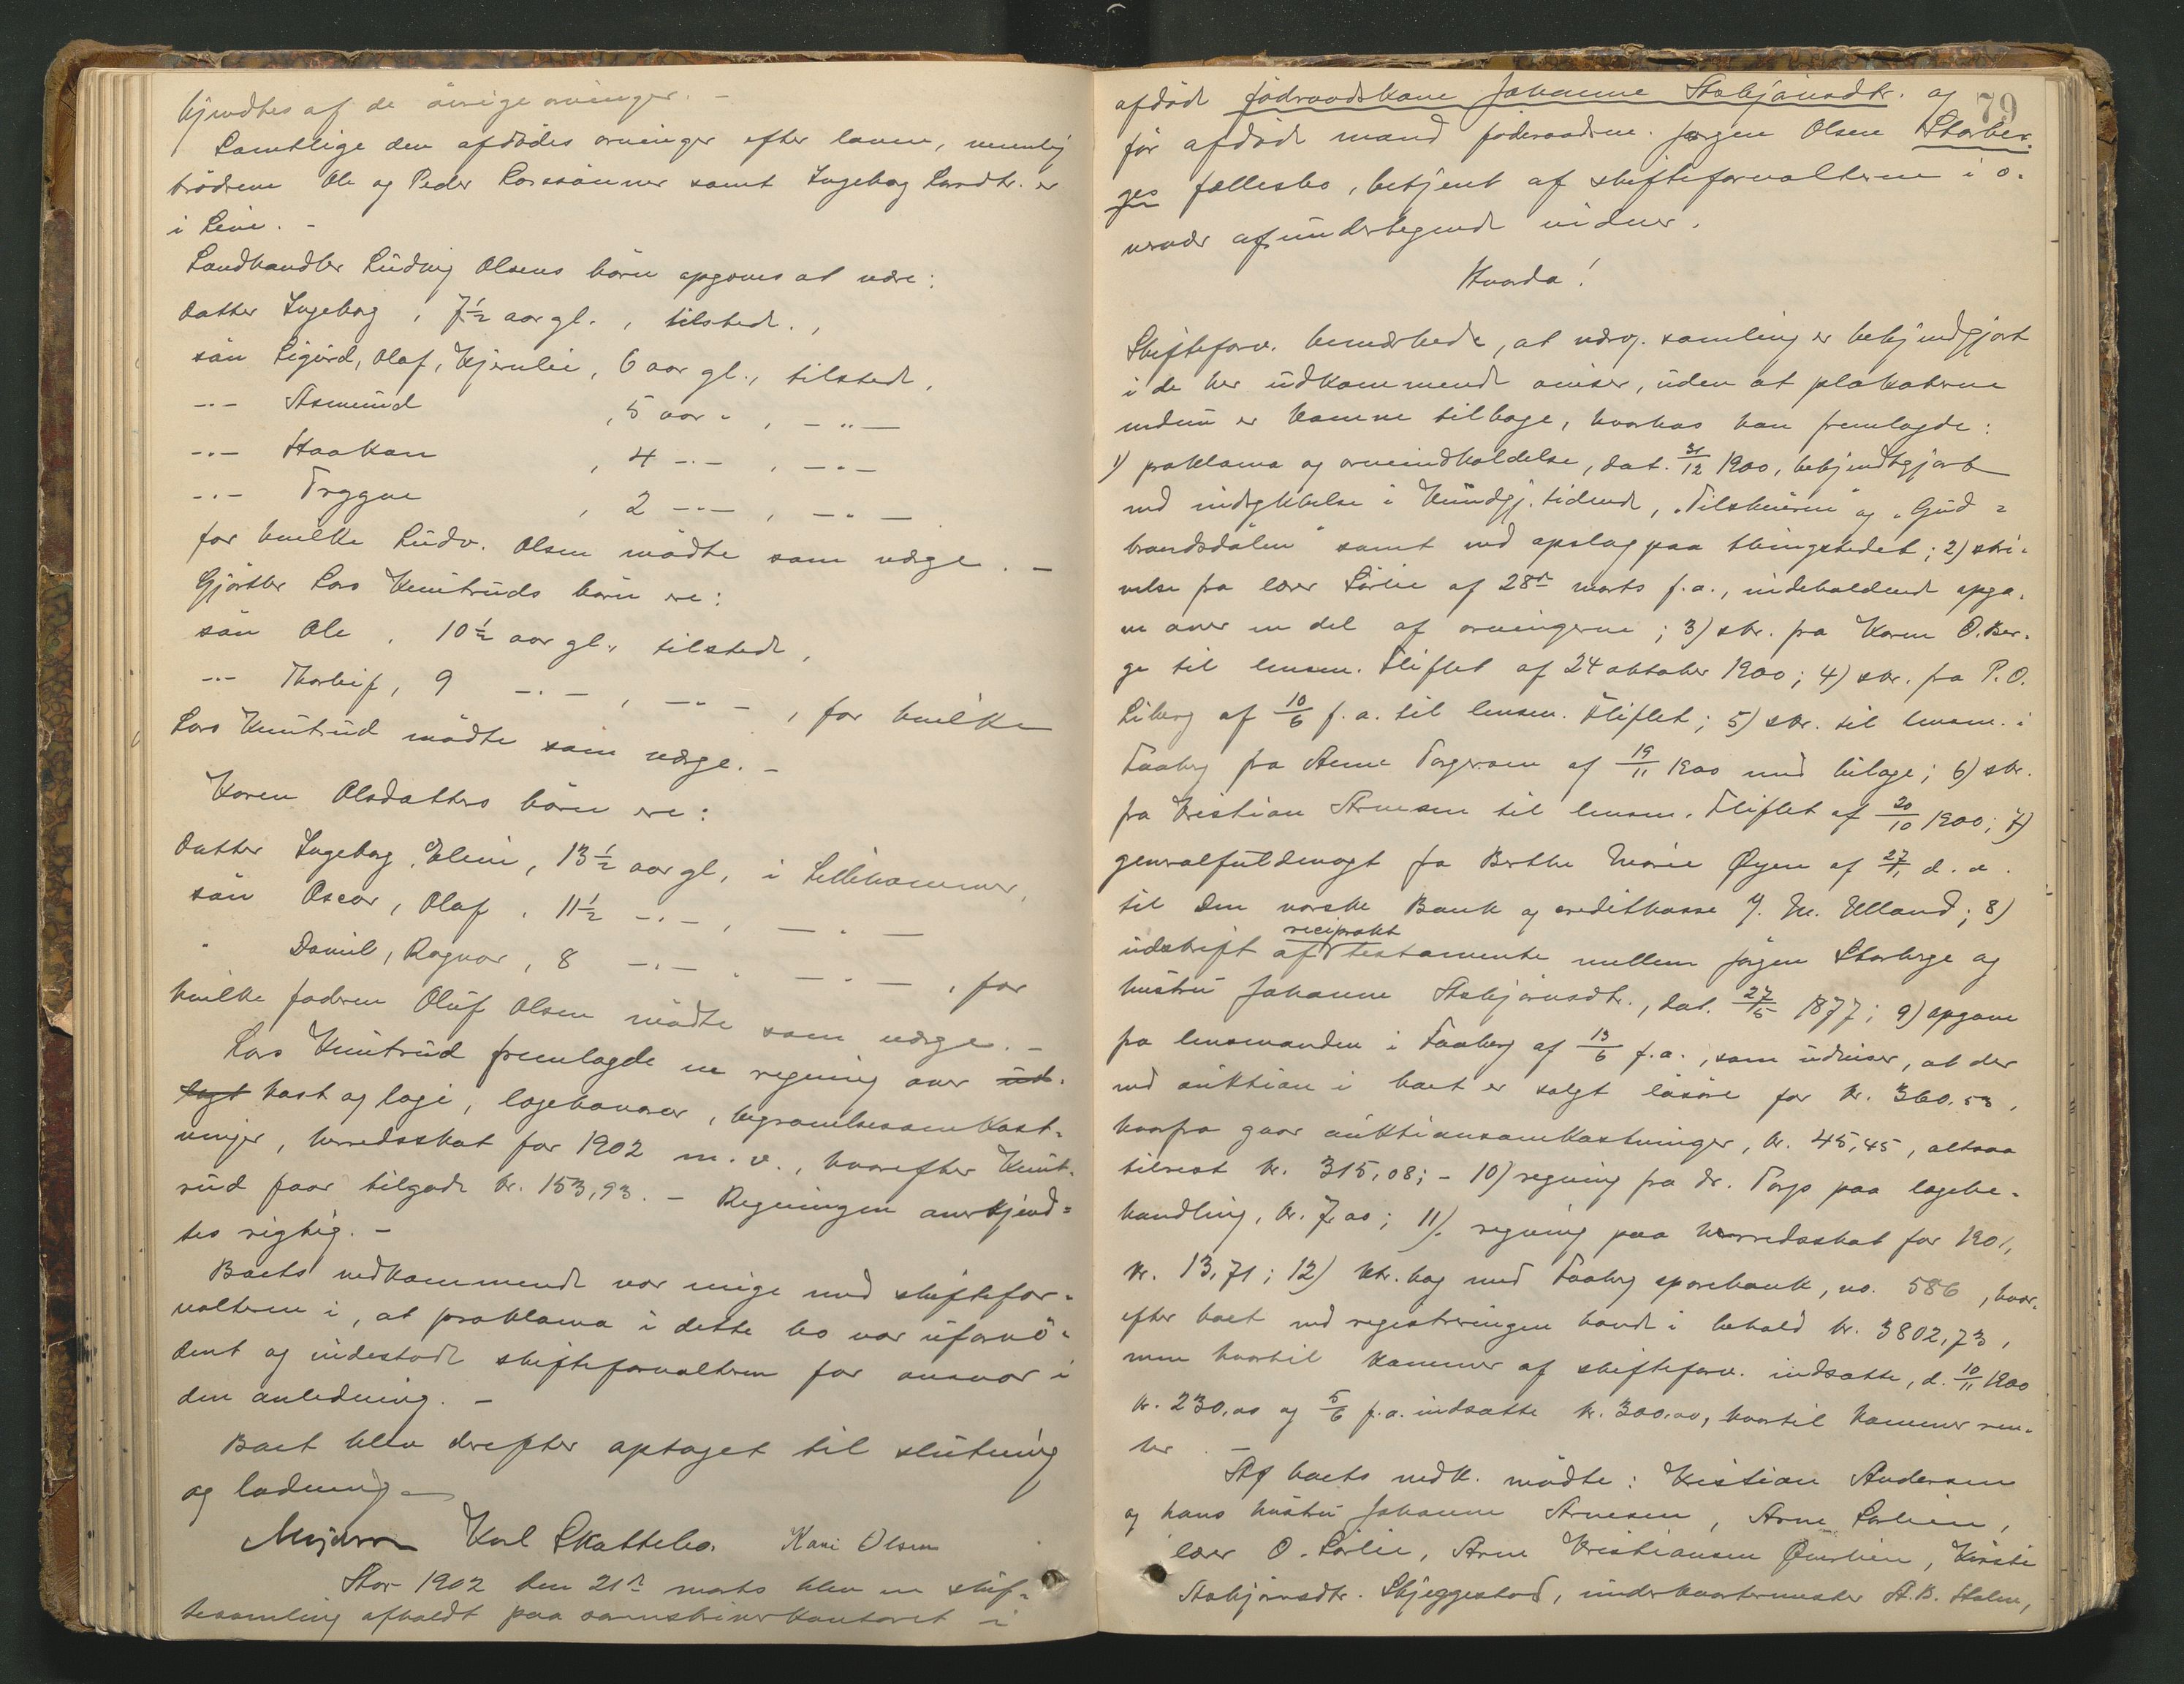 kjendtes af de övrige arvinger. –
Samtlige den afdödes arvinger efter loven, nemlig
brödrene Ole og Peder Larssönner samt Ingeborg Larsdtr. er
i Live. –
Landhandler Ludvig Olsens börn opgaves at være:
datter Ingeborg, 7½ aar gl., tilstede,
sön Sigurd, Olaf, Hjernlie, 6 aar gl., tilstede,
-"- Asmund, 5 aar ", -"-
-"- Haakon, 4 -"-, -"-
-"- Trygve, 2 -"-, -"-
for hvilke Ludv. Olsen mödte som værge. –
Gjörtler Lars Knutruds börn ere:
sön Ole, 10½ aar gl., tilstede,
-"- Thorleif, 9 -"-, -"-, for hvilke
Lars Knutrud mödte som værge. –
Karen Olsdatters börn ere:
datter Ingeborg, Eline, 13½ aar gl, i Lillehammer,
sön Oscar, Olaf, 11½ -"-, -"-
" Daniel, Ragnar, 8 -"-, -"-, for
hvilke faderen Oluf Olsen mödte som værge. –
Lars Knutrud fremlagde en regning over ud-
lagt kost og logi, lægehonorar, begravelsesomkost-
ninger, herredsskat for 1902 m. v., hvorefter Knut-
rud faar tilgode kr. 153,93. – Regningen anerkjend=
tes rigtig. –
Boets vedkommende var enige med skiftefor-
valteren i, at proklama i dette bo var ufornö-
dent og indestode skifteforvalteren for ansvar i
den anledning. –
Boet blev derefter optaget til slutning
og lodning. –
Karl Skattebo. Kari Olsen
Aar 1902 den 21de marts blev en skif-
tesamling afholdt paa sorenskriverkontoret i
79
afdöde födraadskone Johanne Asbjörnsdtr. og
för afdöde mand föderaadsm. Jörgen Olsen Storber-
ges fællesbo, betjent af skifteforvalteren i o-
vervær af undertegnede vidner.
Hvorda!
Skifteforv. bemærkede, at nærv. samling er bekjendtgjort
i de her udkommende aviser, uden at plakaterne
endnu er komne tilbage, hvorhos han fremlagde:
1) proklama og arveindkaldelse, dat. 31/12 1900, bekjendtgjort
ved indrykkelse i Kundgj. tidende, "Tilskueren" og "Gud=
brandsdölen" samt ved opslag paa thingstedet; 2) skri-
velse fra lærer Sörlie af 28de marts f. a., indeholdende opga-
ve over en del af arvingerne; 3) skr. fra Karen O. Ber-
ge til lensm. Fliflet af 24 oktober 1900; 4) skr. fra P. O.
Liberg af 10/6 f. a. til lensm. Fliflet; 5) skr. til lensm. i
Faaberg fra Anne Torgersen af 19/11 1900 med bilage; 6) skr.
fra Kristian Arnesen til lensm. Fliflet af 20/10 1900; 7)
generalfuldmagt fra Berthe Marie Øyen af 27/1 d. a.
til Den norske Bank og creditkasse J. M. Ulland; 8)
udskrift af reciprokt testamente mellem Jörgen Storberge og
hustru Johanne Asbjörnsdtr., dat. 27/5 1877; 9) opgave
fra lensmanden i Faaberg af 13/6 f. a., som udviser, at der
ved auktion i boet er solgt lösöre for kr. 360.53,
hvorfra gaar auktionsomkostninger, kr. 45,45, altsaa
tilrest kr. 315,08; – 10) regning fra dr. Torp paa lægebe-
handling, kr. 7.00; 11) regning paa herredsskat for 1901,
kr. 13,71; 12) ktr. bog med Faaberg sparebank, no. 586, hvor-
efter boet ved registreringen havde i behold kr. 3802,73,
men hvortil kommer af skifteforv. indsatte, d. 10/11 1900
kr. 230,00 og 5/6 f. a. indsatte kr. 300.00, hvortil kommer ren-
ter. –
Af boets vedk. mödte: Kristian Andersen
og hans hustru Johanne Arnesen, Arne Sörlien,
lærer O. Sörlie, Arne Kristiansen Øverlien, Kirsti
Asbjörnsdtr. Skjeggestad, underkvartermester A. B. Holm,